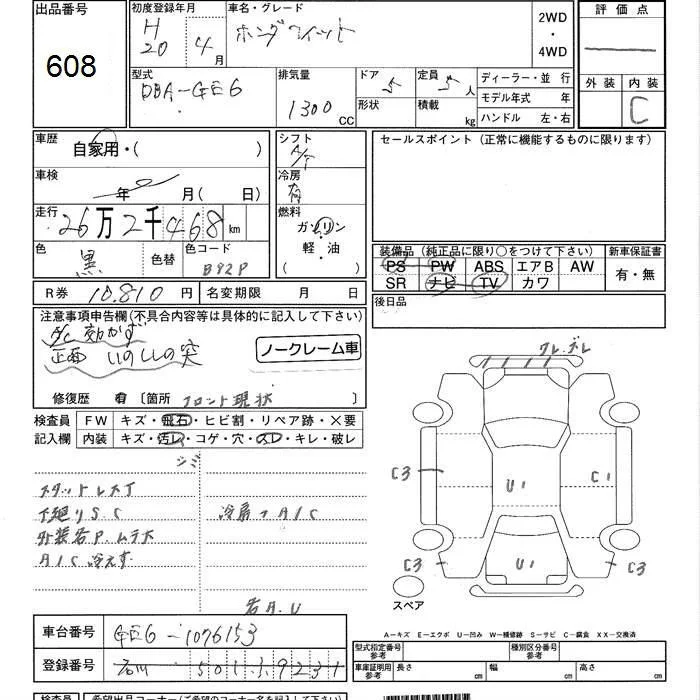 出品番号
608
初度登録年月
H
20 4月
車名・グレード
ホンダ フィット
2WD
・
4WD
評価点
外装 内装
C
型式
DBA-GE6
排気量
1300 CC
ドア 5
形状
定員 5人
積載 kg
ディーラー・並行
モデル年式 年
ハンドル 左・右
車歴
自家用・( )
シフト
A/T
車検
年 月(日)
冷房
有
走行
26万2千468 km
燃料
ガソリン
軽・油
( )
色
黒
色替
色コード
B92P
セールスポイント (正常に機能するものに限ります)
装備品 (純正品に限り○をつけて下さい)
PS PW ABS エアB AW
SR ナビ TV カワ
新車保証書
有・無
後日品
R券 10,810円
名変期限 月 日
注意事項申告欄(不具合内容等は具体的に記入して下さい)
A/C 効かず
正面 いのししの突
ノークレーム車
修復歴 有 〔箇所 フロント現状 〕
検査員 FW キズ・飛石・ヒビ割・リペア跡・×要
記入欄 内装 キズ・汚レ・コゲ・穴・スレ・キレ・破レ
シミ
スタットレス
下廻りS.C
外装名P.ムラ
A/C 冷えず
冷房 A/C
右A.U
ワレ.ズレ
C3
U1
C1
C3
U1
C3
スペア
A-キズ E-エクボ U-凹み W-補修跡 S-サビ C-腐食 XX-交換済
車台番号 GE6-1076153
登録番号 石川 501 9231
型式指定番号 参考
種別区分番号 参考
車庫証明用 参考
長さ cm 幅 cm 高さ cm
検査員 希望出品コーナー(ご希望のコーナー名を記入して下さい)